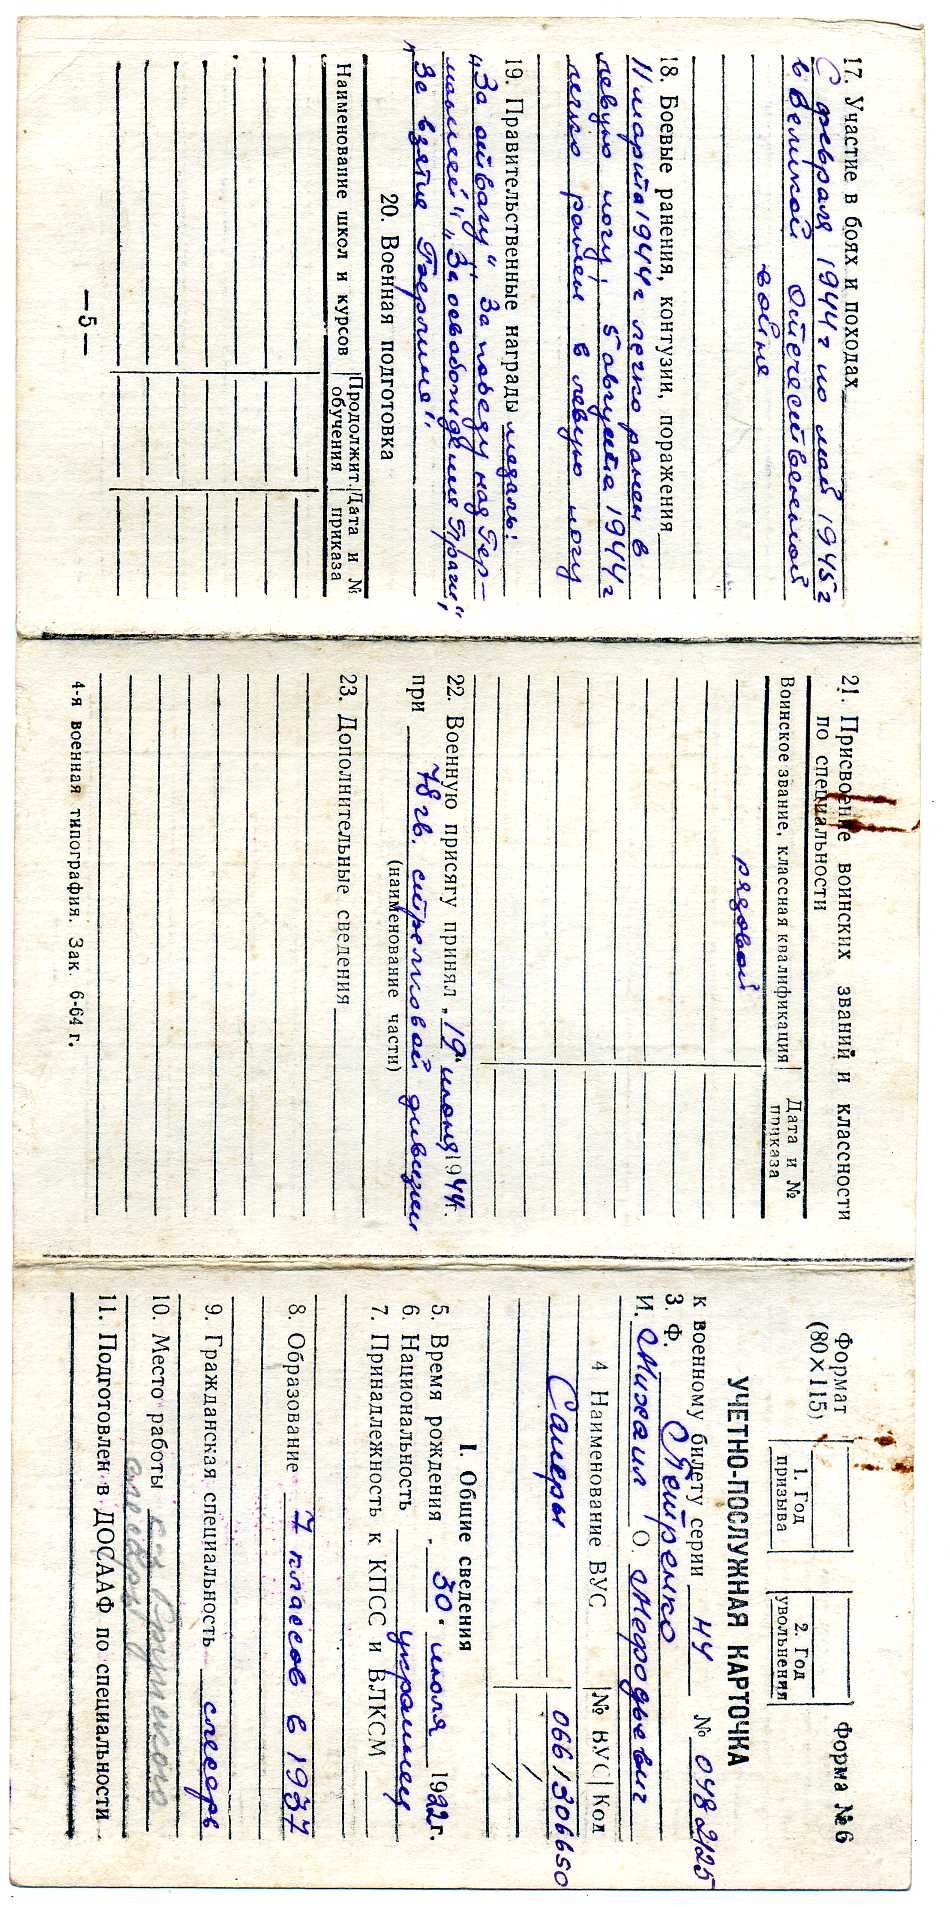 17. Участие в боях и походах
С февраля 1944 г по май 1945 г
в Великой Отечественной
войне
18. Боевые ранения, контузии, поражения
11 марта 1944 г легко ранен в
левую ногу; 5 августа 1944 г
легко ранен в левую ногу
19. Правительственные награды медаль:
„За отвагу“, „За победу над Гер-
манией“, „За освобождение Праги“,
„За взятие Берлина“.
20. Военная подготовка
Наименование школ и курсов
Продолжит. обучения
Дата и № приказа
—5—
21. Присвоение воинских званий и классности
по специальности
Воинское звание, классная квалификация
Дата и № приказа
рядовой
22. Военную присягу принял „19“ июня 1944 г.
при 78 гв. стрелковой дивизии
(наименование части)
23. Дополнительные сведения
4-я военная типография. Зак. 6-64 г.
Формат
(80×115)
1. Год
призыва
2. Год
увольнения
Форма № 6
УЧЕТНО-ПОСЛУЖНАЯ КАРТОЧКА
к военному билету серии НУ № 0482125
3. Ф. Петренко
И. Михаил О. Мефодьевич
4 Наименование ВУС
№ ВУС
Код
Саперы
066130665О
I. Общие сведения
5. Время рождения „30“ июля 1922 г.
6. Национальность украинец
7. Принадлежность к КПСС и ВЛКСМ
8. Образование 7 классов в 1937
9. Гражданская специальность слесарь
10. Место работы
слесарь
11. Подготовлен в ДОСААФ по специальности